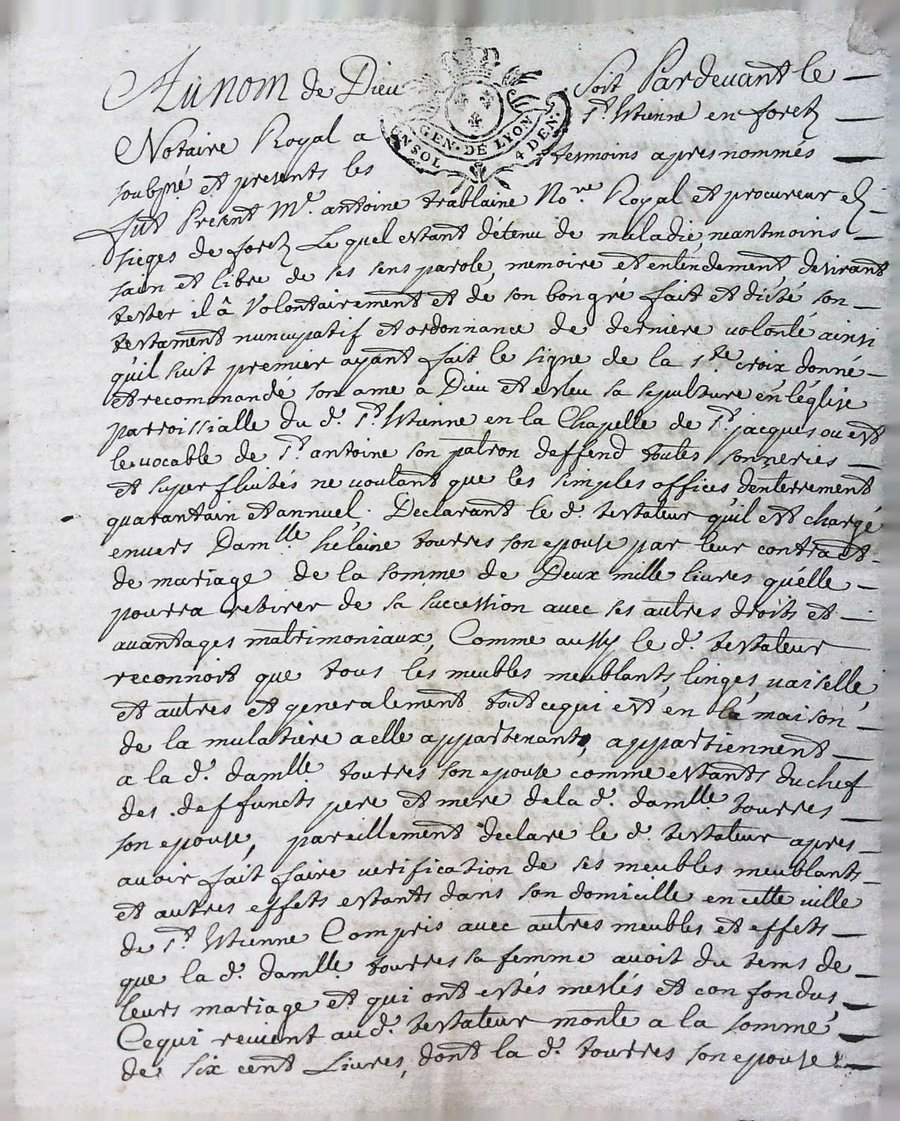 Au nom de Dieu soit Pardevant le
Notaire Royal a St. Etienne en forez
GEN. DE LYON
UN SOL 4 DEN.
soubsné et presents les tesmoins apres nommés
fut Present Me. antoine trablaine Nore. Royal et procureur ez
sieges de forez Lequel estant détenu de maladie, neantmoins
sain et libre de ses sens parole, memoire et entendement desirant
tester il â Volontairement et de son bon gré fait et dicté son
testament nuncupatif et ordonnance de derniere volonté ainsi
qu'il suit premier ayant fait le signe de la ste. croix donné
et recommandé son ame a Dieu et esleu sa sepulture en l'église
parroissialle du d. St. Etienne en la Chapelle de St. jacques ou est
le vocable de St. antoine son patron deffend toutes sonneries
et superfluités ne voulant que les simples offices d'enterrement
quarantain et annuel. Declarant le d. testateur qu'il est chargé
envers Damlle. heleine tourres son epouse par leur contract
de mariage de la somme de Deux mille livres qu'elle
pourra retirer de sa succession avec ses autres droits et
avantages matrimoniaux, Comme aussy le d. testateur
reconnoit que tous les meubles meublants, linges, vaiselle,
et autres et generalement tout cequi est en la maison
de la mulatiere a elle appartenant, appartiennent
a la d. damlle tourres son epouse comme estants du chef
des deffuncts pere et mere dela d. damlle tourres
son epouse, pareillement declare le d. testateur apres
avoir fait faire verification de ses meubles meublants
et autres effets estants dans son domicille en cette ville
de St. Etienne Compris avec autres meubles et effets
que la d. damlle. tourres sa femme avoit du tems de
leurs mariage et qui ont estés meslés et confondus
Cequi revient au d. testateur monte a la somme
de six cent Livres, dont la d. tourres son epouse